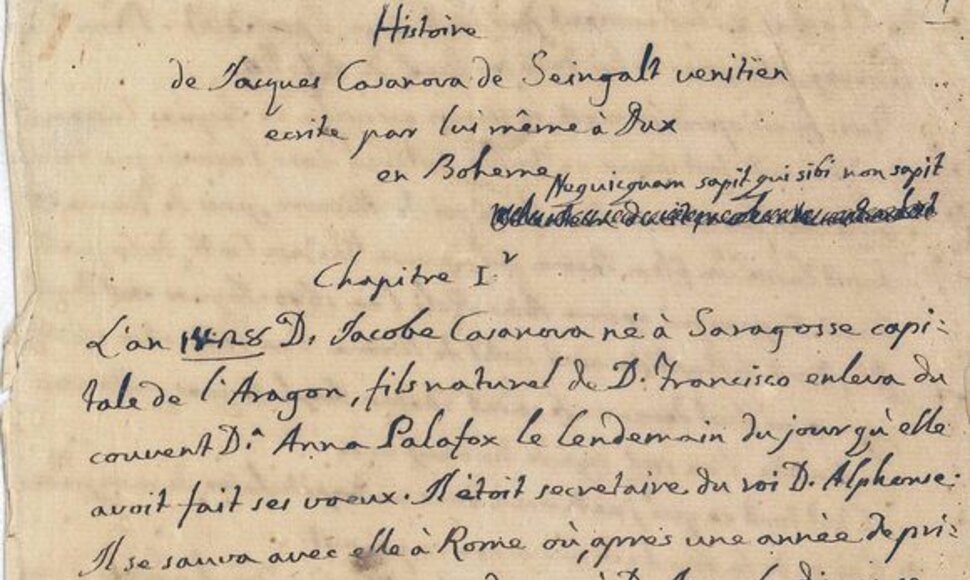 1
Histoire
de Jacques Casanova de Seingalt venitïen
ecrite par lui même à Dux
en Boheme
Nequicquam sapit qui sibi non sapit
Chapitre I.r
L'an 1428 D. Jacobe Casanova né à Saragosse capi-
tale de l'Aragon, fils naturel de D. Francisco enleva du
couvent D.a Anna Palafox le lendemain du jour qu'elle
avoit fait ses voeux. Il étoit secretaire du roi D. Alphonse.
Il se sauva avec elle à Rome où, après une année de pri-